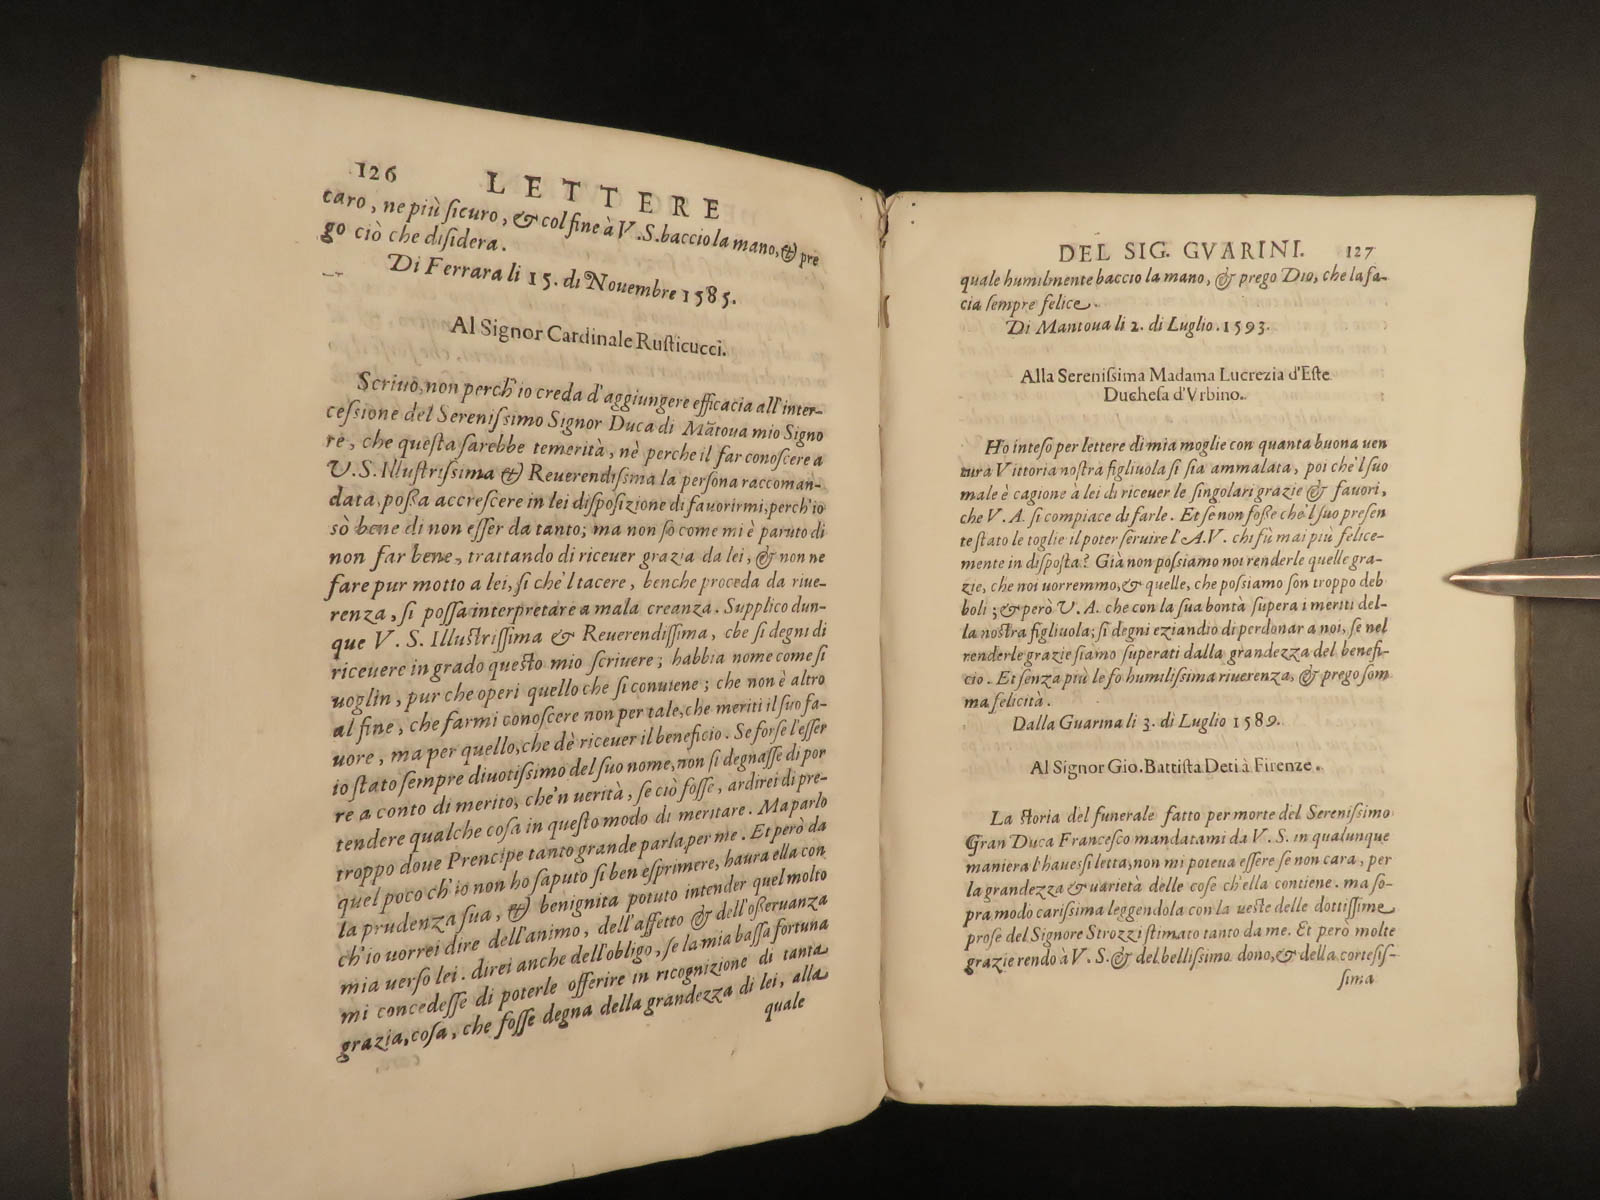 126 LETTERE
caro, ne più ſicuro, & col fine à V. S. baccio la mano, & pre
go ciò che diſidera.
Di Ferrara li 15. di Nouembre 1585.
Al Signor Cardinale Ruſticucci.
Scriuo, non perch'io creda d'aggiungere efficacia all'inter-
ceſſione del Sereniſſimo Signor Duca di Mãtoua mio Signo
re, che queſta ſarebbe temerità, nè perche il far conoſcere a
V. S. Illuſtriſſima & Reuerendiſſima la perſona raccoman-
data, poſſa accreſcere in lei diſpoſizione di fauorirmi, perch'io
sò bene di non eſſer da tanto; ma non ſo come mi è paruto di
non far bene, trattando di riceuer grazia da lei, & non ne
fare pur motto a lei, ſi che'l tacere, benche proceda da riue-
renza, ſi poſſa interpretare a mala creanza. Supplico dun-
que V. S. Illuſtriſſima & Reuerendiſſima, che ſi degni di
riceuere in grado queſto mio ſcriuere; habbia nome come ſi
uoglia, pur che operi quello che ſi conuiene; che non è altro
al fine, che farmi conoſcere non per tale, che meriti il ſuo fa-
uore, ma per quello, che dè riceuer il beneficio. Se forſe l'eſſer
io ſtato ſempre diuotiſſimo del ſuo nome, non ſi degnaſſe di por
re a conto di merito, che'n uerità, ſe ciò foſſe, ardirei di pre-
tendere qualche coſa in queſto modo di meritare. Ma parlo
troppo doue Prencipe tanto grande parla per me. Et però da
quel poco ch'io non ho ſaputo ſi ben eſprimere, haura ella con
la prudenza ſua, & benignita potuto intender quel molto
ch'io uorrei dire dell'animo, dell'affetto & dell'oſſeruanza
mia uerſo lei. direi anche dell'obligo, ſe la mia baſſa fortuna
mi concedeſſe di poterle offerire in ricognizione di tanta
grazia, coſa, che foſſe degna della grandezza di lei, alla
quale
DEL SIG. GVARINI. 127
quale humilmente baccio la mano, & prego Dio, che la fa-
cia ſempre felice.
Di Mantoua li 2. di Luglio. 1593.
Alla Sereniſsima Madama Lucrezia d'Eſte
Ducheſa d'Vrbino.
Ho inteſo per lettere di mia moglie con quanta buona uen
tura Vittoria noſtra figliuola ſi ſia ammalata, poi che'l ſuo
male è cagione à lei di riceuer le ſingolari grazie & fauori,
che V. A. ſi compiace di farle. Et ſe non foſſe che'l ſuo preſen
te ſtato le toglie il poter ſeruire l'A.V. chi fù mai più felice-
mente in diſpoſta? Già non poſsiamo noi renderle quelle gra-
zie, che noi uorremmo, & quelle, che poſsiamo ſon troppo deb
boli; & però V. A. che con la ſua bontà ſupera i meriti del-
la noſtra figliuola; ſi degni eziandio di perdonar a noi, ſe nel
renderle grazie ſiamo ſuperati dalla grandezza del benefi-
cio. Et ſenza più le fo humiliſsima riuerenza, & prego ſom
ma felicità.
Dalla Guarina li 3. di Luglio 1589.
Al Signor Gio. Battiſta Deti à Firenze.
La ſtoria del funerale fatto per morte del Sereniſsimo
Gran Duca Franceſco mandatami da V. S. in qualunque
maniera l'haueſsi letta, non mi poteua eſſere ſe non cara, per
la grandezza & uarietà delle coſe ch'ella contiene. ma ſo-
pra modo cariſsima leggendola con la ueſte delle dottiſſime
proſe del Signore Strozzi ſtimato tanto da me. Et però molte
grazie rendo à V. S. & del belliſsimo dono, & della corteſiſ-
ſima